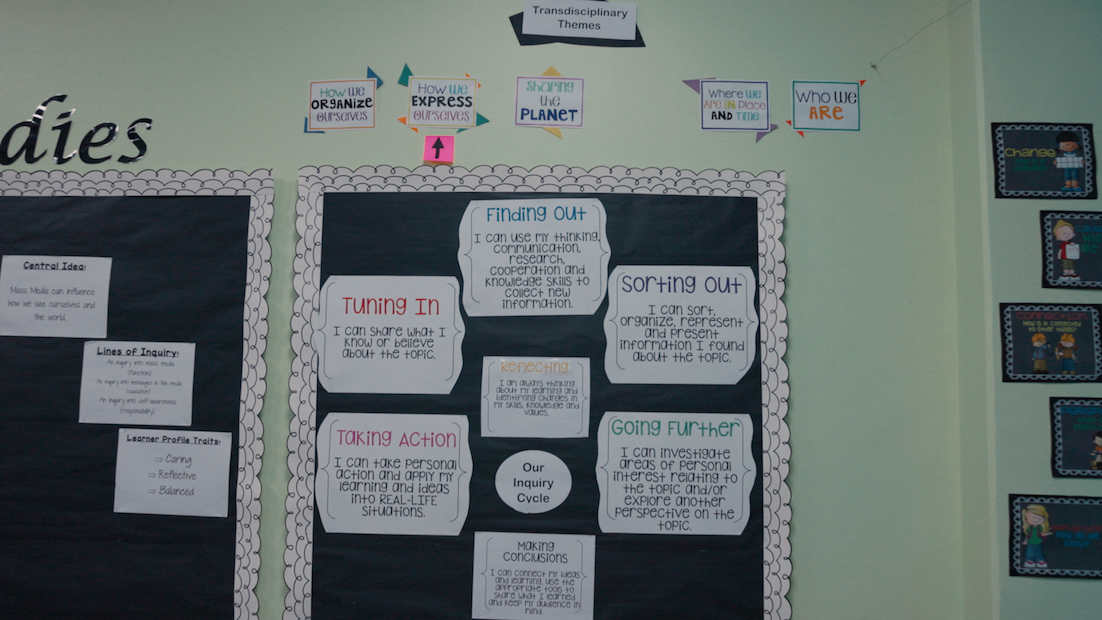 Transdisciplinary
Themes
How we
ORGANIZE
OURSELVES
How we
EXPRESS
OURSELVES
Sharing
the
PLANET
Where we
ARE IN Place
AND Time
Who we
ARE
dies
Central Idea:
Mass Media can influence
how we see ourselves and
the world.
Lines of Inquiry:
- An inquiry into mass media
(function)
- An inquiry into messages in the media
(causation)
- An inquiry into self-awareness
(responsibility)
Learner Profile Traits:
⇒ Caring
⇒ Reflective
⇒ Balanced
Finding Out
I can use my thinking,
communication,
research,
cooperation and
knowledge skills to
collect new
information.
Tuning In
I can share what I
know or believe
about the topic.
Sorting Out
I can sort,
organize, represent
and present
information I found
about the topic.
Reflecting
I am always thinking
about my learning and
identifying changes in
my skills, knowledge and
values.
Taking Action
I can take personal
action and apply my
learning and ideas
into REAL-LIFE
situations.
Our
Inquiry
Cycle
Going Further
I can investigate
areas of personal
interest relating to
the topic and/or
explore another
perspective on the
topic.
Making
Conclusions
I can connect my ideas
and learning, use the
appropriate tools to
share what I learned
and keep my audience in
mind.
Change
Connection
How is it connected
to other things?